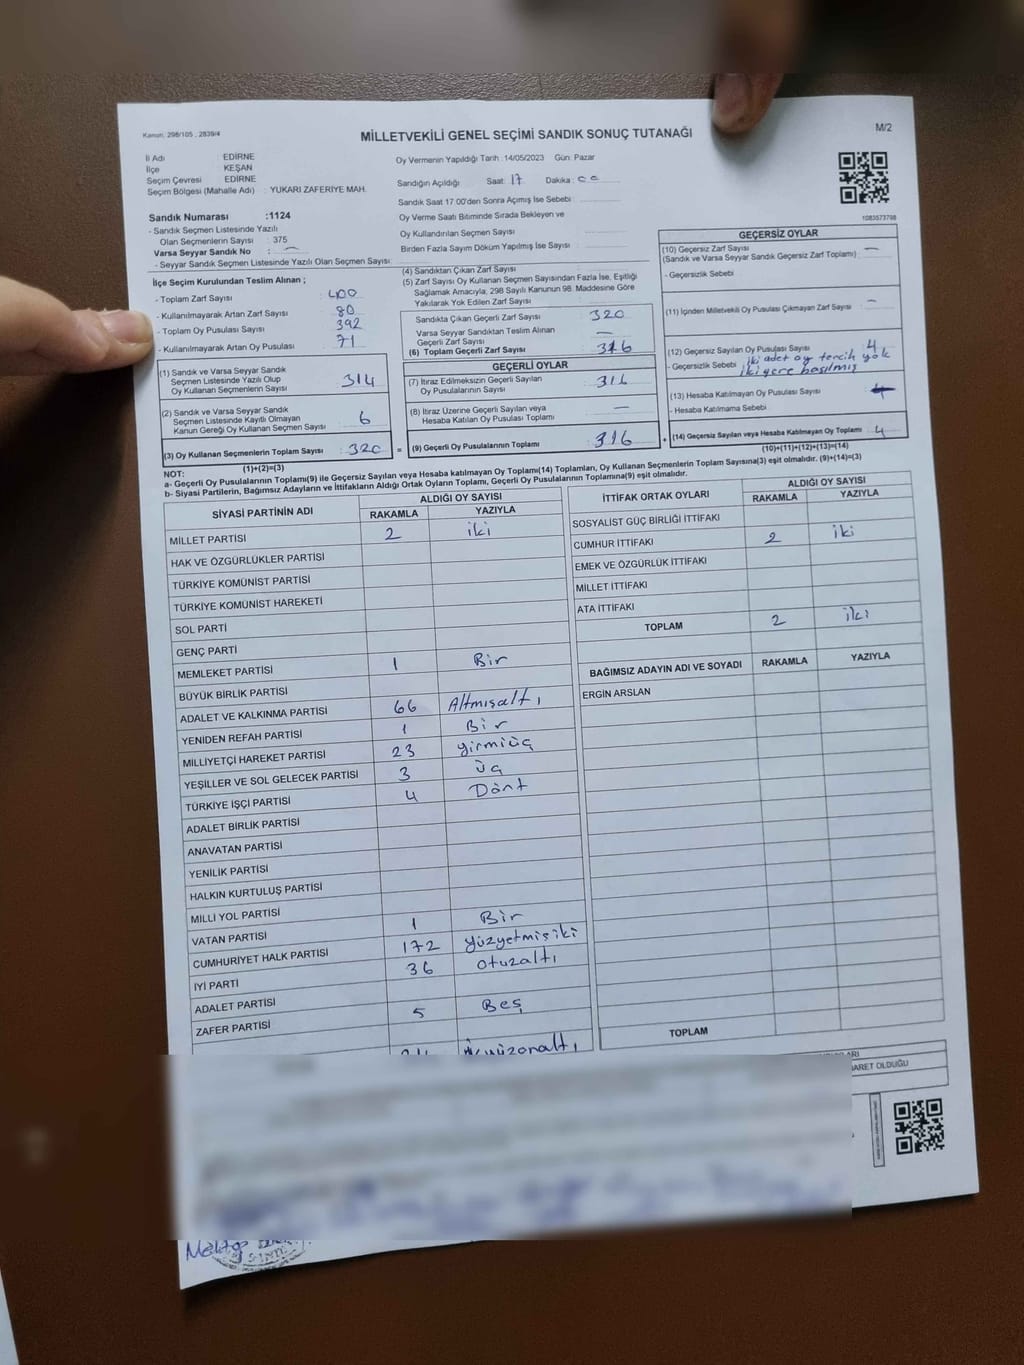 Kanun: 298/105 , 2839/4
MİLLETVEKİLİ GENEL SEÇİMİ SANDIK SONUÇ TUTANAĞI
M/2
İl Adı EDİRNE
İlçe KEŞAN
Seçim Çevresi EDİRNE
Seçim Bölgesi (Mahalle Adı) : YUKARI ZAFERİYE MAH.
Oy Vermenin Yapıldığı Tarih : 14/05/2023 Gün: Pazar
Sandığın Açıldığı Saat: 17 Dakika: 00
Sandık Saat 17.00'den Sonra Açılmış İse Sebebi :
Oy Verme Saati Bitiminde Sırada Bekleyen ve
Oy Kullandırılan Seçmen Sayısı :
Birden Fazla Sayım Döküm Yapılmış İse Sayısı :
1083573798
Sandık Numarası :1124
- Sandık Seçmen Listesinde Yazılı
Olan Seçmenlerin Sayısı : 375
Varsa Seyyar Sandık No : —
- Seyyar Sandık Seçmen Listesinde Yazılı Olan Seçmen Sayısı:
İlçe Seçim Kurulundan Teslim Alınan ;
- Toplam Zarf Sayısı : 400
- Kullanılmayarak Artan Zarf Sayısı : 80
- Toplam Oy Pusulası Sayısı : 392
- Kullanılmayarak Artan Oy Pusulası : 71
(1) Sandık ve Varsa Seyyar Sandık
Seçmen Listesinde Yazılı Olup
Oy Kullanan Seçmenlerin Sayısı : 314
(2) Sandık ve Varsa Seyyar Sandık
Seçmen Listesinde Kayıtlı Olmayan
Kanun Gereği Oy Kullanan Seçmen Sayısı : 6
(3) Oy Kullanan Seçmenlerin Toplam Sayısı : 320
(1)+(2)=(3)
(4) Sandıktan Çıkan Zarf Sayısı :
(5) Zarf Sayısı Oy Kullanan Seçmen Sayısından Fazla İse, Eşitliği
Sağlamak Amacıyla; 298 Sayılı Kanunun 98. Maddesine Göre
Yakılarak Yok Edilen Zarf Sayısı :
Sandıkta Çıkan Geçerli Zarf Sayısı : 320
Varsa Seyyar Sandıktan Teslim Alınan
Geçerli Zarf Sayısı : —
(6) Toplam Geçerli Zarf Sayısı : 316
GEÇERLİ OYLAR
(7) İtiraz Edilmeksizin Geçerli Sayılan
Oy Pusulalarının Sayısı : 316
(8) İtiraz Üzerine Geçerli Sayılan veya
Hesaba Katılan Oy Pusulası Toplamı : —
= (9) Geçerli Oy Pusulalarının Toplamı : 316
GEÇERSİZ OYLAR
(10) Geçersiz Zarf Sayısı —
(Sandık ve Varsa Seyyar Sandık Geçersiz Zarf Toplamı) :
- Geçersizlik Sebebi
(11) İçinden Milletvekili Oy Pusulası Çıkmayan Zarf Sayısı : —
(12) Geçersiz Sayılan Oy Pusulası Sayısı : 4
- Geçersizlik Sebebi iki adet oy tercih yok
iki yere basılmış
(13) Hesaba Katılmayan Oy Pusulası Sayısı :
- Hesaba Katılmama Sebebi
+ (14) Geçersiz Sayılan veya Hesaba Katılmayan Oy Toplamı : 4
(10)+(11)+(12)+(13)=(14)
NOT:
a- Geçerli Oy Pusulalarının Toplamı(9) ile Geçersiz Sayılan veya Hesaba katılmayan Oy Toplamı(14) Toplamları, Oy Kullanan Seçmenlerin Toplam Sayısına(3) eşit olmalıdır. (9)+(14)=(3)
b- Siyasi Partilerin, Bağımsız Adayların ve İttifakların Aldığı Ortak Oyların Toplamı, Geçerli Oy Pusulalarının Toplamına(9) eşit olmalıdır.
SİYASİ PARTİNİN ADI ALDIĞI OY SAYISI
RAKAMLA YAZIYLA
MİLLET PARTİSİ 2 iki
HAK VE ÖZGÜRLÜKLER PARTİSİ
TÜRKİYE KOMÜNİST PARTİSİ
TÜRKİYE KOMÜNİST HAREKETİ
SOL PARTİ
GENÇ PARTİ
MEMLEKET PARTİSİ 1 Bir
BÜYÜK BİRLİK PARTİSİ
ADALET VE KALKINMA PARTİSİ 66 Altmışaltı
YENİDEN REFAH PARTİSİ 1 Bir
MİLLİYETÇİ HAREKET PARTİSİ 23 yirmiüç
YEŞİLLER VE SOL GELECEK PARTİSİ 3 üç
TÜRKİYE İŞÇİ PARTİSİ 4 Dört
ADALET BİRLİK PARTİSİ
ANAVATAN PARTİSİ
YENİLİK PARTİSİ
HALKIN KURTULUŞ PARTİSİ
MİLLİ YOL PARTİSİ
VATAN PARTİSİ 1 Bir
CUMHURİYET HALK PARTİSİ 172 yüzyetmişiki
İYİ PARTİ 36 otuzaltı
ADALET PARTİSİ
ZAFER PARTİSİ 5 Beş
İTTİFAK ORTAK OYLARI ALDIĞI OY SAYISI
RAKAMLA YAZIYLA
SOSYALİST GÜÇ BİRLİĞİ İTTİFAKI
CUMHUR İTTİFAKI 2 iki
EMEK VE ÖZGÜRLÜK İTTİFAKI
MİLLET İTTİFAKI
ATA İTTİFAKI
TOPLAM 2 iki
BAĞIMSIZ ADAYIN ADI VE SOYADI RAKAMLA YAZIYLA
ERGİN ARSLAN
TOPLAM